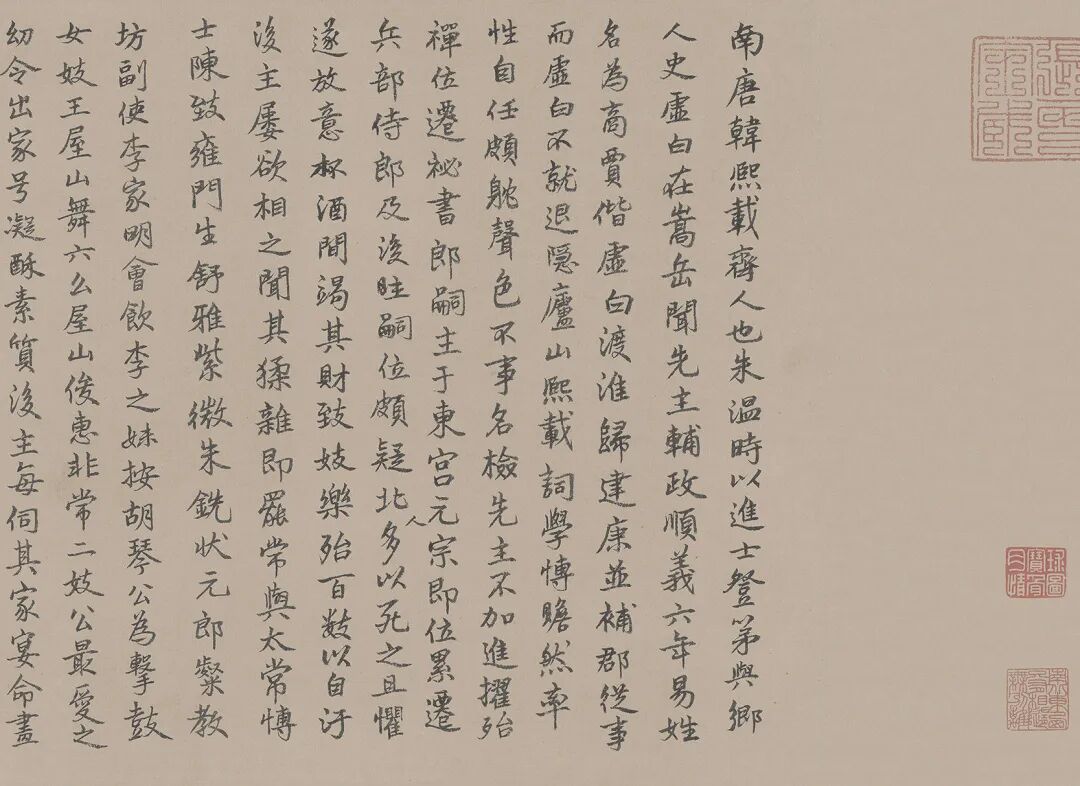 南唐韓熙載齊人也朱温時以進士登第與鄉
人史虛白在嵩岳聞先主輔政順義六年易姓
名為商賈偕虛白渡淮歸建康並補郡從事
而虛白不就退隱廬山熙載詞學博贍然率
性自任頗躭聲色不事名檢先主不加進擢殆
禪位遷祕書郎嗣主于東宮元宗即位累遷
兵部侍郎及後主嗣位頗疑北人多以死之且懼
遂放意杯酒間竭其財致妓樂殆百數以自汙
後主屢欲相之聞其猱雜即罷常與太常博
士陳致雍門生舒雅紫微朱銑狀元郎粲教
坊副使李家明會飲李之妹按胡琴公為擊鼓
女妓王屋山舞六么屋山俊惠非常二妓公最愛之
幼令出家号凝酥素質後主每伺其家宴命畫